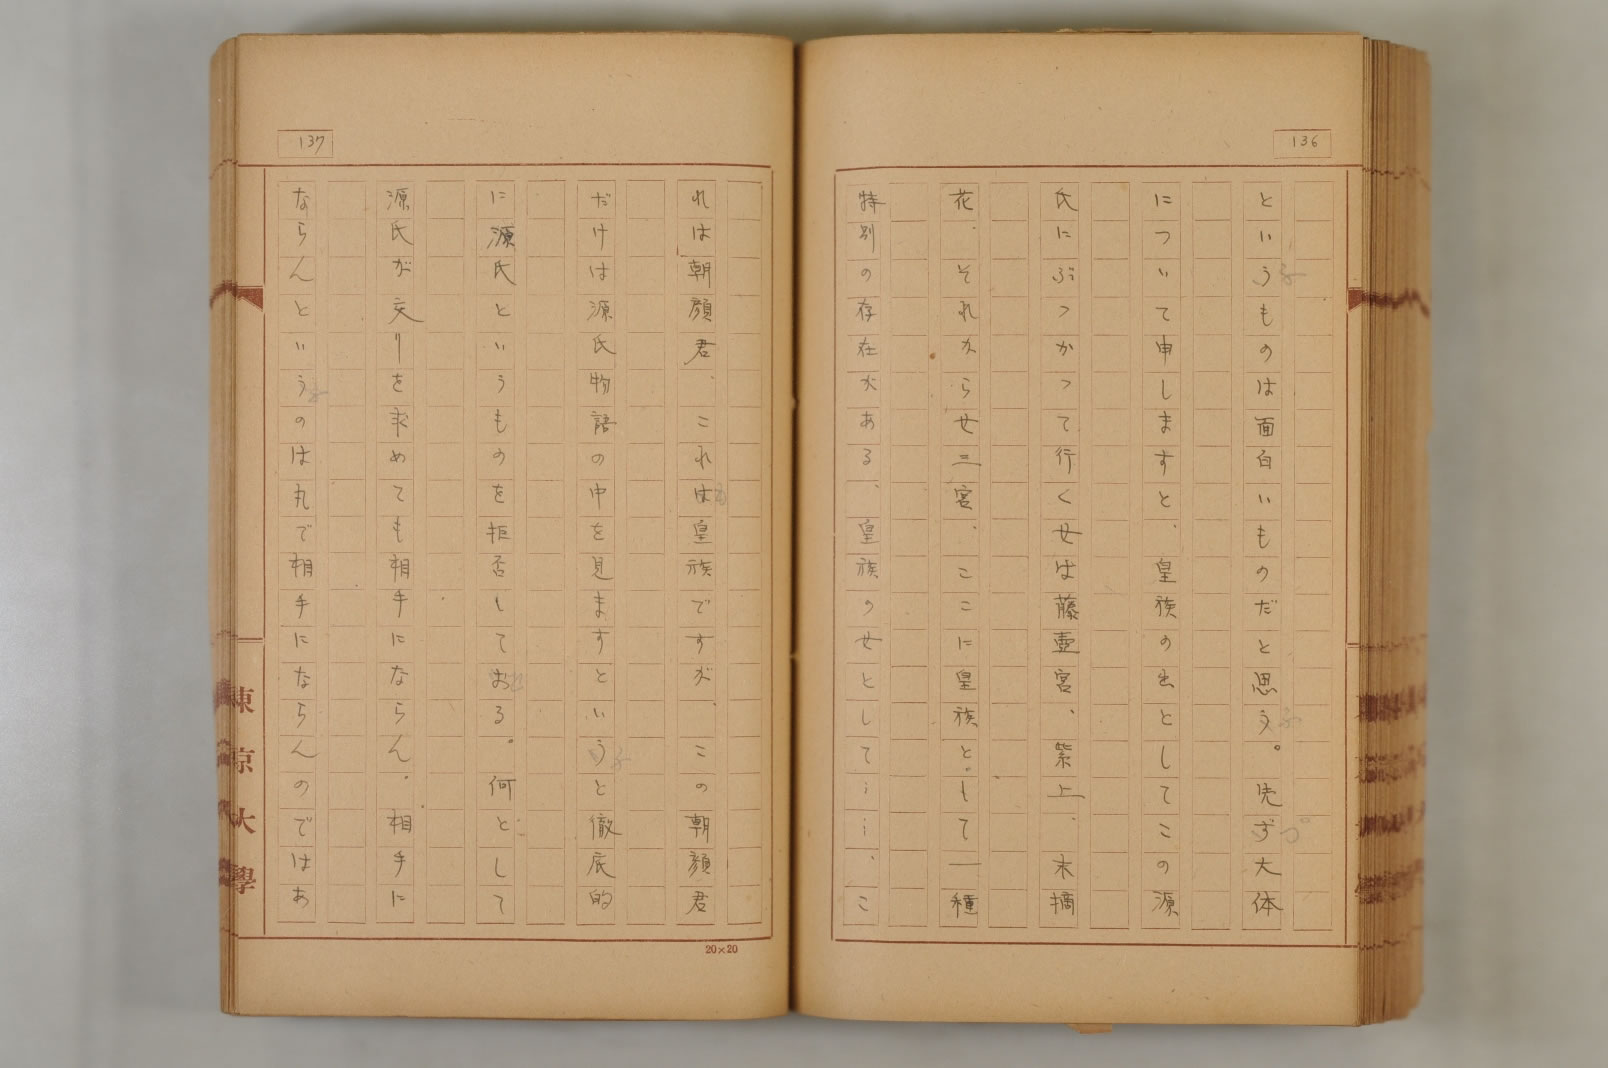 136
というものは面白いものだと思う。先ず大体
ふ
ふ
づ
について申しますと、皇族の出としてこの源
氏にぶつかつて行く女は藤壷宮、紫上、末摘
花、それから女三宮、ここに皇族として一種
特別の存在がある、皇族の女として……、こ
137
れは朝顔君、これは皇族ですが、この朝顔君
も
だけは源氏物語の中を見ますというと徹底的
ふ
に源氏というものを拒否しておる。何として
源氏が交りを求めても相手にならん。相手に
ならんというのは丸で相手にならんのではあ
ふ
20×20
東京大學